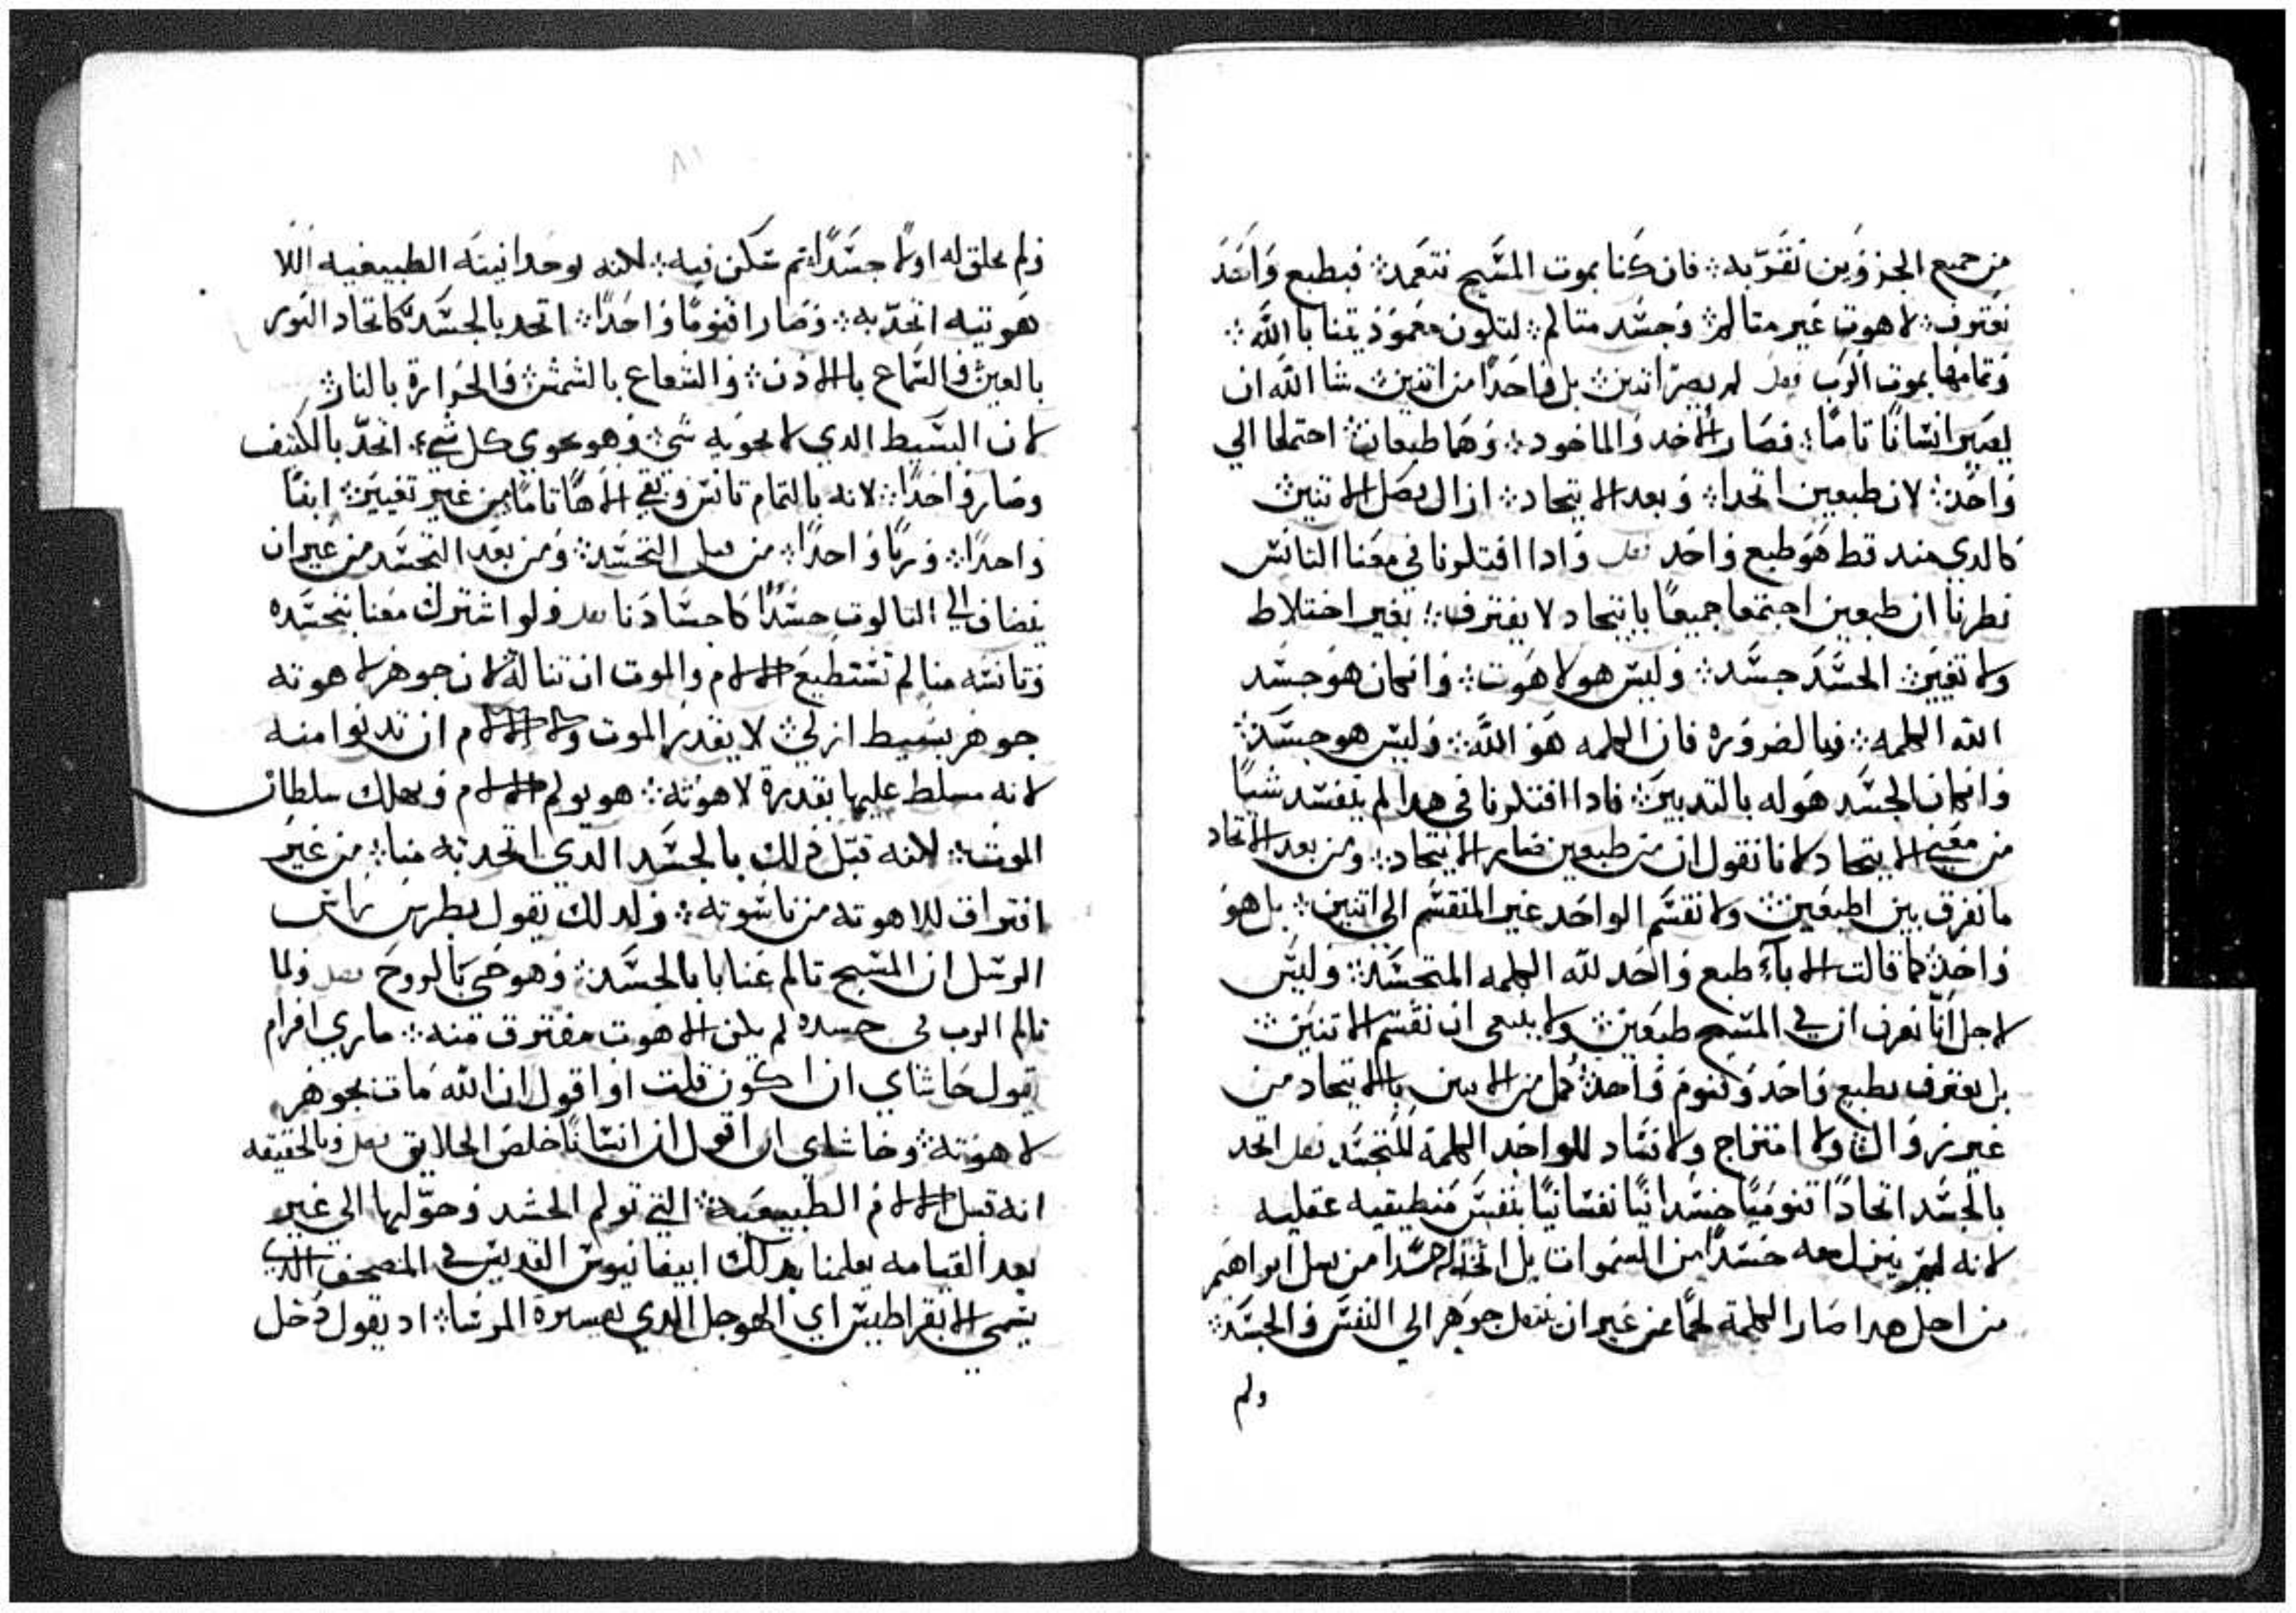 من جميع الجزوين نقر به ܀ فان كنا بموت المسيح نتعمد ܀ فبطبع واحد
نعترف ܀ لاهوت غير متالم ܀ وجسد متالم ܀ لتكون معموذيتنا بالله ܀
وتمامها بموت الرب فصل لم يصر اتنين ܀ بل واحدًا من اتنين ܀ شا الله ان
يصير انسانًا تامًا ܀ فصار الاخد والماخود ܀ وهما طبعان ܀ احتملا الي
واحد ܀ لان طبعين اتحدا ܀ وبعد الايتحاد ܀ ازال فصل الاتنين
كالدي منه قط هو طبع واحد فصل وادا افتكرنا في معنا التانس
نطرنا ان طبعين اجتمعا جميعًا بايتحاد لا يفترق ܀ بغير اختلاط
ولا تغيير ܀ الجسد جسد ܀ وليس هو لاهوت ܀ وان كان هو جسد
الله الكلمه ܀ وبالضروره فان الكلمه هو الله ܀ وليس هو جسد ܀
وان كان الجسد هو له بالتدبير ܀ فادا افتكرنا في هدا لم يتفسد شيًا
من معني الايتحاد لانا نقول ان من طبعين صار الايتحاد ܀ ومن بعد الاتحاد
ما نفرق بين اطبعين ܀ ولا نقسم الواحد غير المنقسم الي اتنين ܀ بل هو
واحد ܀ كما قالت الاباء طبع واحد لله الكلمه المتجسد ܀ وليس
لاجل انا نعرف ان في المسيح طبعين ܀ ولا ينبغي ان نقسم الاتنين ܀
بل نعترف بطبع واحد وقنوم واحد ܀ كمل من الاتنين بالايتحاد من
غير زوال ܀ ولا امتزاج ولا فساد للواحد الكلمة المتجسد فصل اتحد
بالجسد اتحادًا قنوميًا جسدانيًا نفسانيًا بنفس منطيقيه عقليه
لانه لم ينزل معه جسدًا من السموات بل اتخد له جسدًا من نسل ابراهيم
من اجل هدا صار الكلمة لحمًا من غير ان ينتقل جوهر الي النفس والجسد ܀
ولم
٨١
ولم يخلق له اولًا جسدًا ܀ تم سكن فيه ܀ لاكنه بوحدانيته الطبيعيه اللا
هوتيه اتحد به ܀ وصار اقنومًا واحدًا ܀ اتحد بالجسد كاتحاد النور
بالعين ܀ والسماع بالاذن ܀ والشعاع بالشمس ܀ والحرارة بالنار ܀
لان البسيط الدي لا يحويه شي ܀ وهو يحوي كل شيء ܀ اتحد بالكثيف
وصار واحدًا ܀ لانه بالتمام تانس وبقي الاهًا تامًا من غير تغيير ܀ ابنًا
واحدًا ܀ وربًا واحدًا ܀ من قبل التجسد ܀ ومن بعد التجسد من غير ان
يضاف الي التالوت جسدًا كاجسادنا فصل ولو اشترك معنا بتجسده
وتانسه منا لم تستطيع الالام والموت ان تناله لان جوهر لاهوته
جوهر بسيط ازلي ܀ لا يقدر الموت ولا الالام ان تدنوا منه
لانه مسلط عليها بقدرة لاهوته ܀ هو يولم الالام ويهلك سلطان
الموت ܀ لاكنه قبل ذلك بالجسد الدي اتحد به منا ܀ من غير
افتراق للاهوته من ناسوته ܀ ولدلك يقول بطرس راس
الرسل ان المسيح تالم عنا بالجسد ܀ وهو حي بالروح فصل ولما
تالم الرب في جسده لم يكن الاهوت مفترق منه ܀ ماري افرام
يقول حاشاي ان اكون قلت او اقول ان الله مات بجوهر
لاهوته ܀ وحاشاي ان اقول ان انسانًا خلص الخلايق فصل وبالحقيقه
انه قبل الالام الطبيعيه ܀ التي تولم الجسد وحولها الي غير
بعد القيامه يعلمنا بدلك ابيفانيوس القديس في المصحف الدي
يسمي الابقراطيس اي الهوجل الدي تفسيرة المرسا ܀ اد يقول دخل